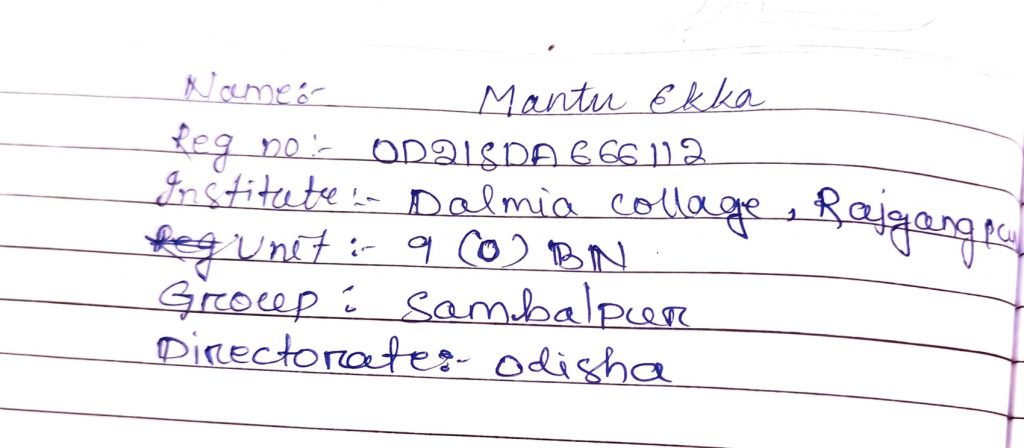 Name:- Mantu Ekka
Reg no:- OD21SDA666112
Institute:- Dalmia collage, Rajgangpu
Unit:- 9 (O) BN
Group: Sambalpur
Directorate:- Odisha